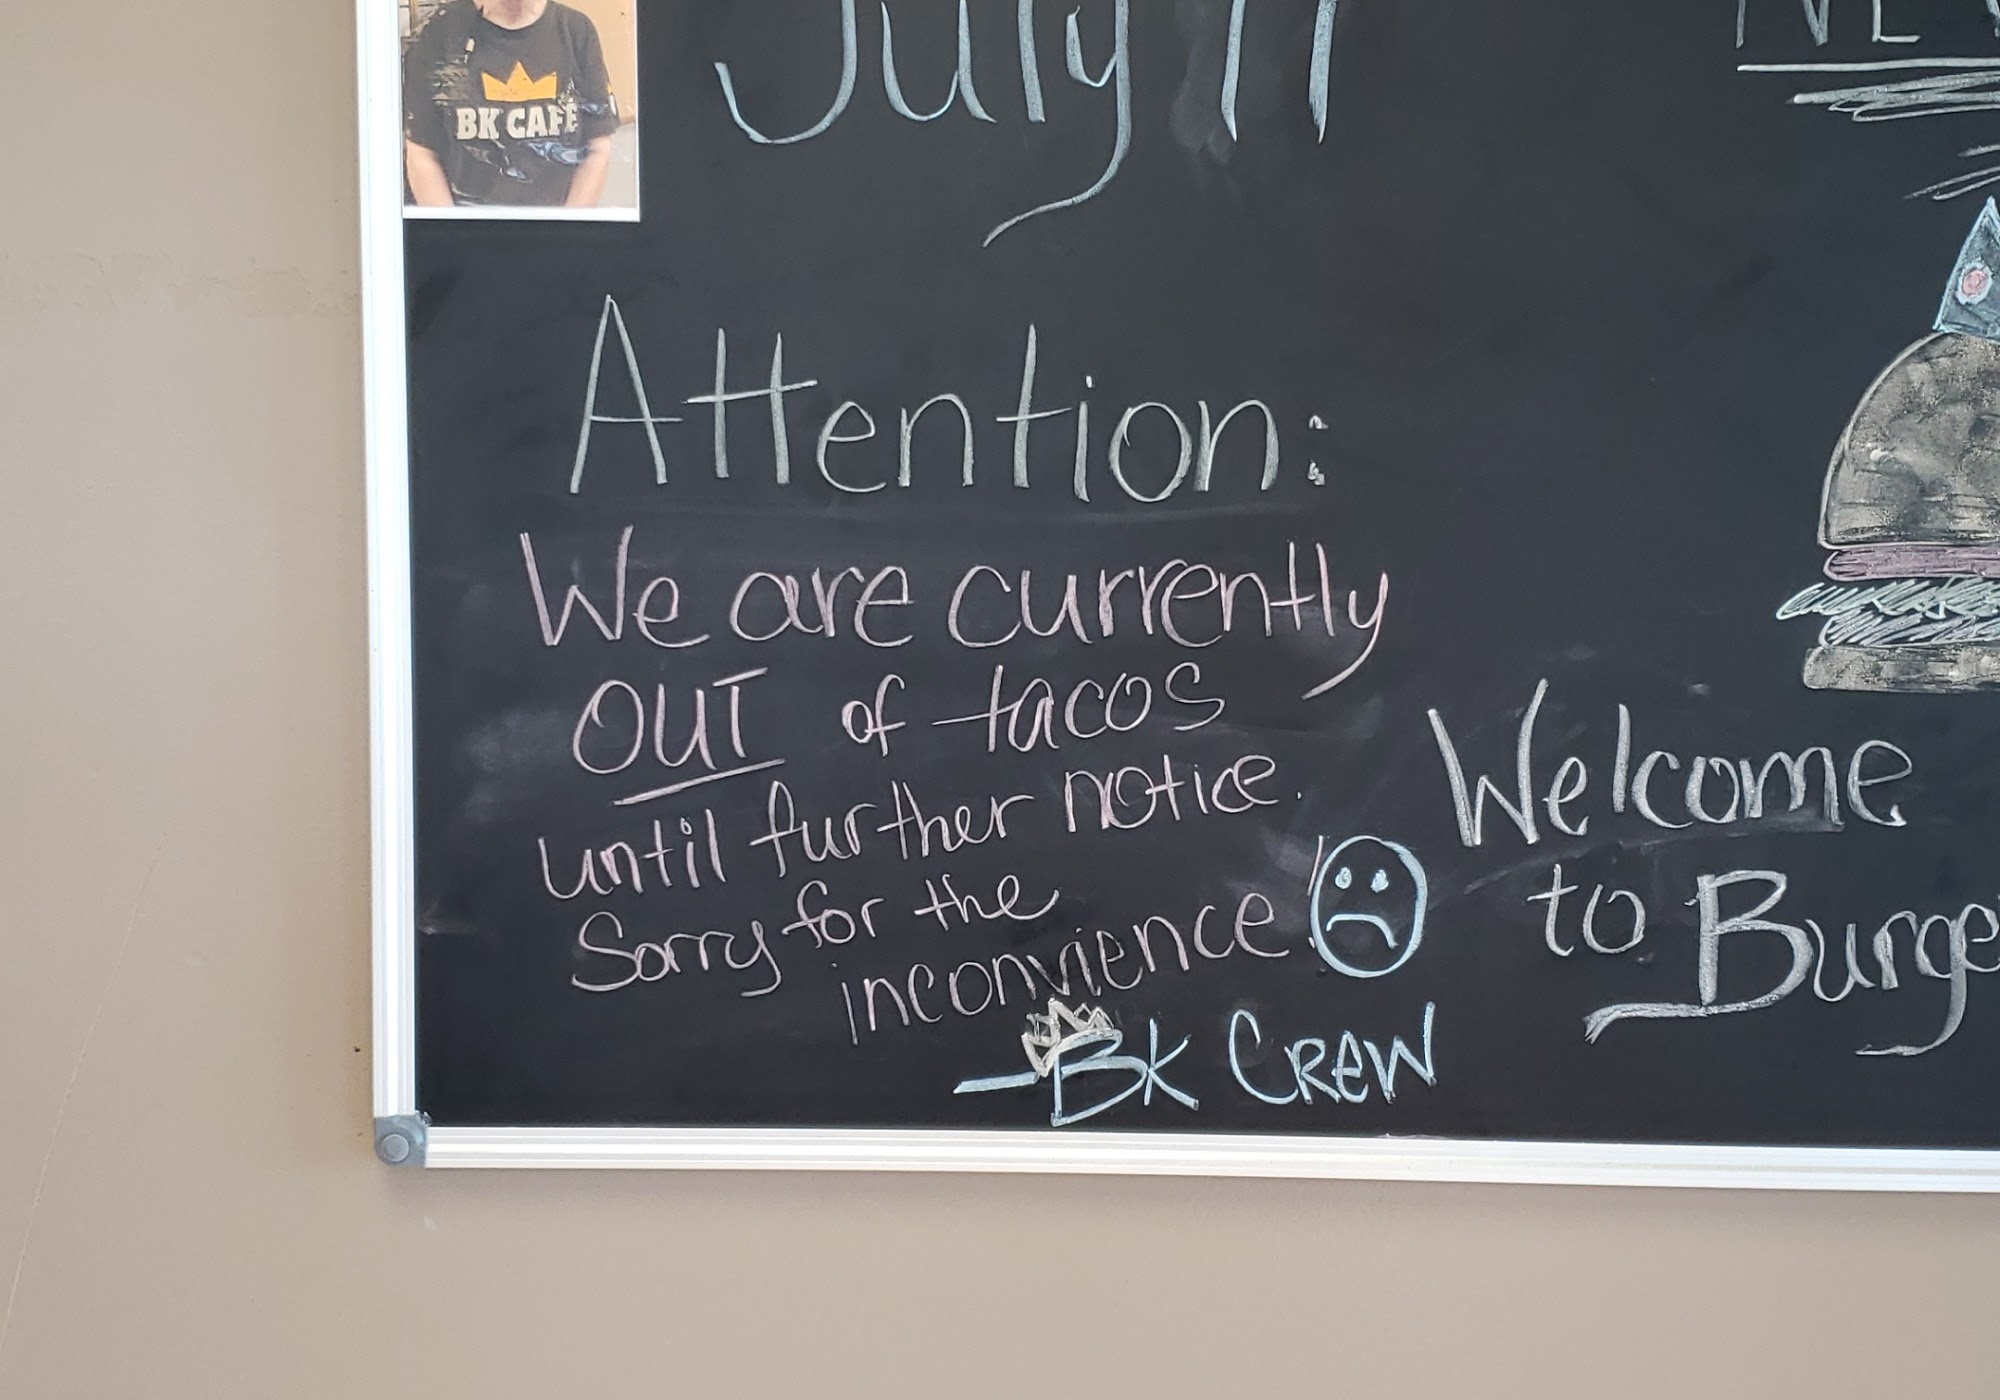 BK CAFÉ
July 11
Attention:
We are currently
OUT of tacos
until further notice.
Sorry for the
inconvience!
-BK CREW
Welcome
to Burge